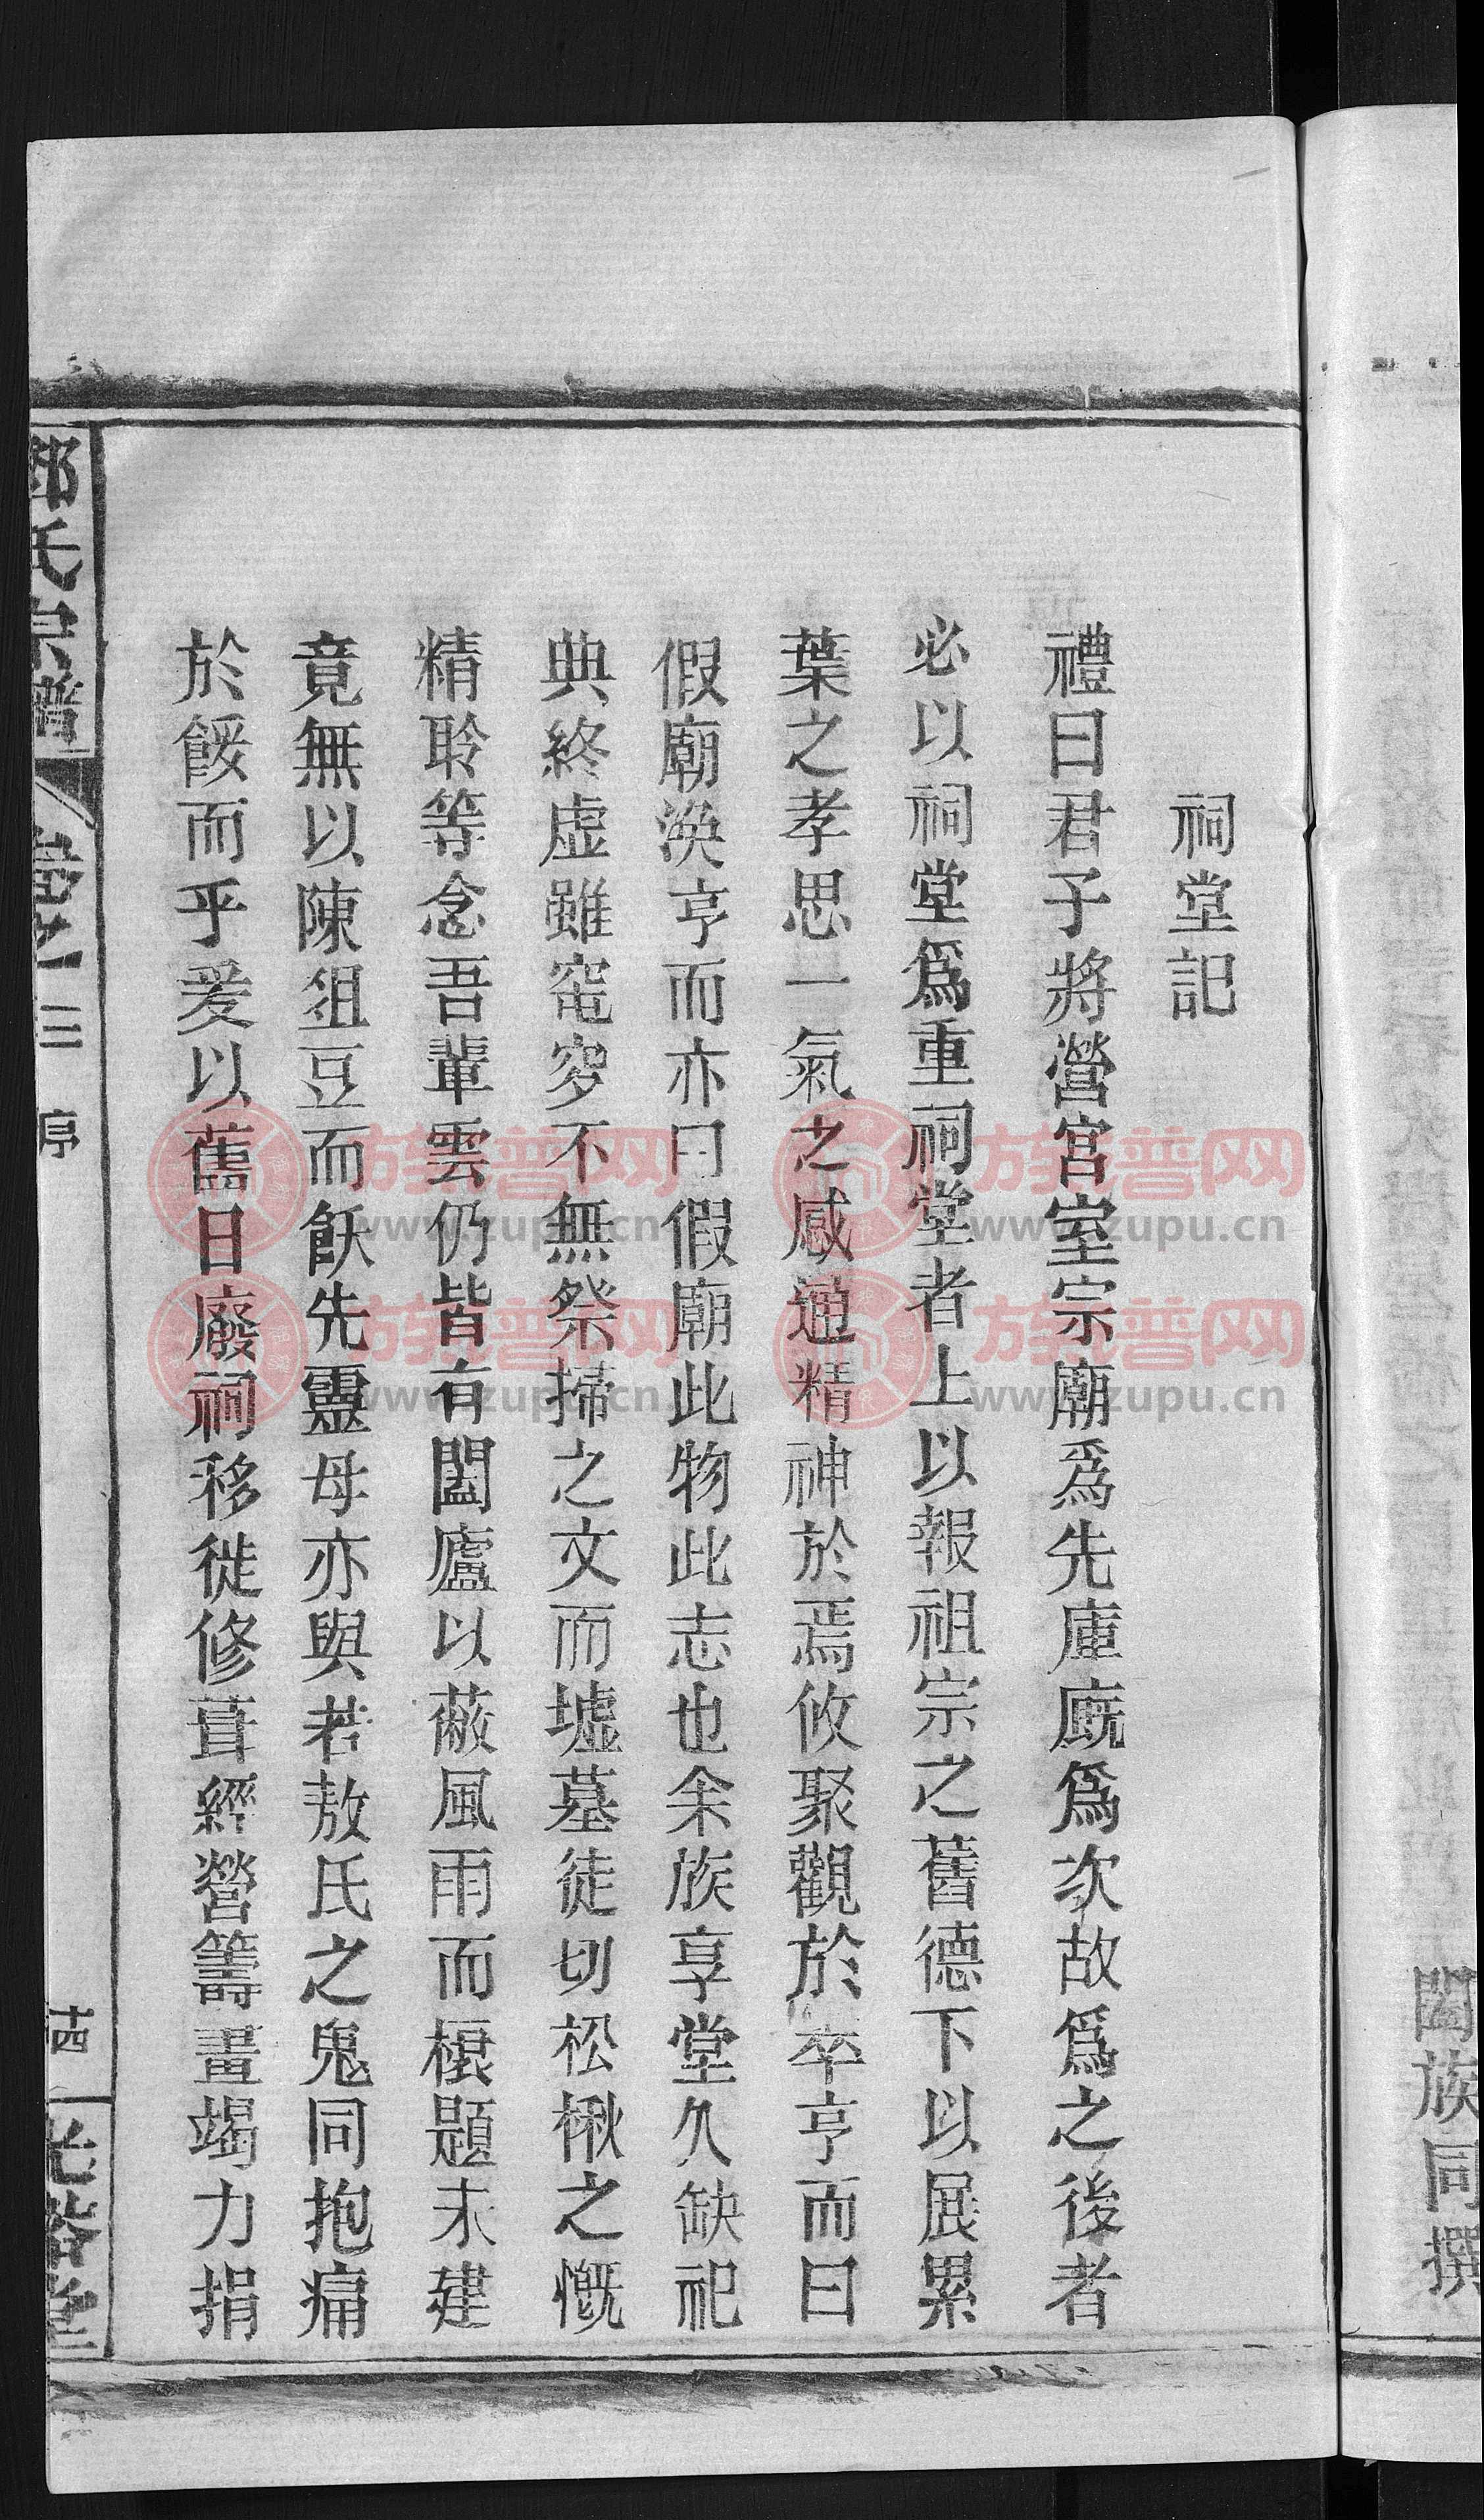 閤族同撰
祠堂記
禮曰君子將營宮室宗廟爲先庫廐爲次故爲之後者
必以祠堂爲重祠堂者上以報祖宗之舊德下以展累
葉之孝思一氣之感通精神於焉攸聚觀於卒亨而曰
假廟渙亨而亦曰假廟此物此志也余族享堂久缺祀
典終虛雖窀穸不無祭掃之文而墟墓徒切松楸之慨
精聆等念吾輩雲仍皆有闔廬以蔽風雨而榱題未建
竟無以陳俎豆而飫先靈毋亦與若敖氏之鬼同抱痛
於餒而乎爰以舊日廢祠移徙修葺經營籌畫竭力捐
氏宗譜
卷
三
序
十四
堂
族譜网
www.zupu.cn
族譜网
www.zupu.cn
族譜网
www.zupu.cn
族譜网
www.zupu.cn